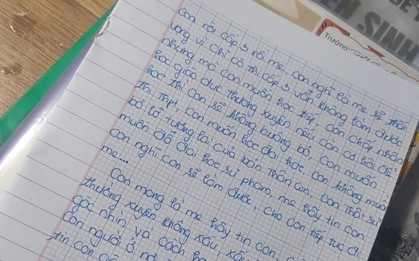 Con rời cấp 3 rồi mẹ. Con nghĩ là mẹ sẽ thất
vọng vì chỉ có thi cấp 3 vẫn không làm được
nhưng mà con muốn học tiếp. Con chấp nhận
học giáo dục thường xuyên nếu con có hội để
học thì con sẽ không buông bỏ, con muốn
thi THPT, con muốn học đại học, con không muốn
bỏ lỡ tương lai của bản thân con, con thật sự
muốn đỗ đại học sư phạm, mẹ hãy tin con
con nghĩ con sẽ làm được, cho con tiếp tục đi
mẹ...
Con mong là mẹ hãy tin con,
thường xuyên không xấu, xấu
góc nhìn và cách
con người ở nơi
tin con
Trường
SINH